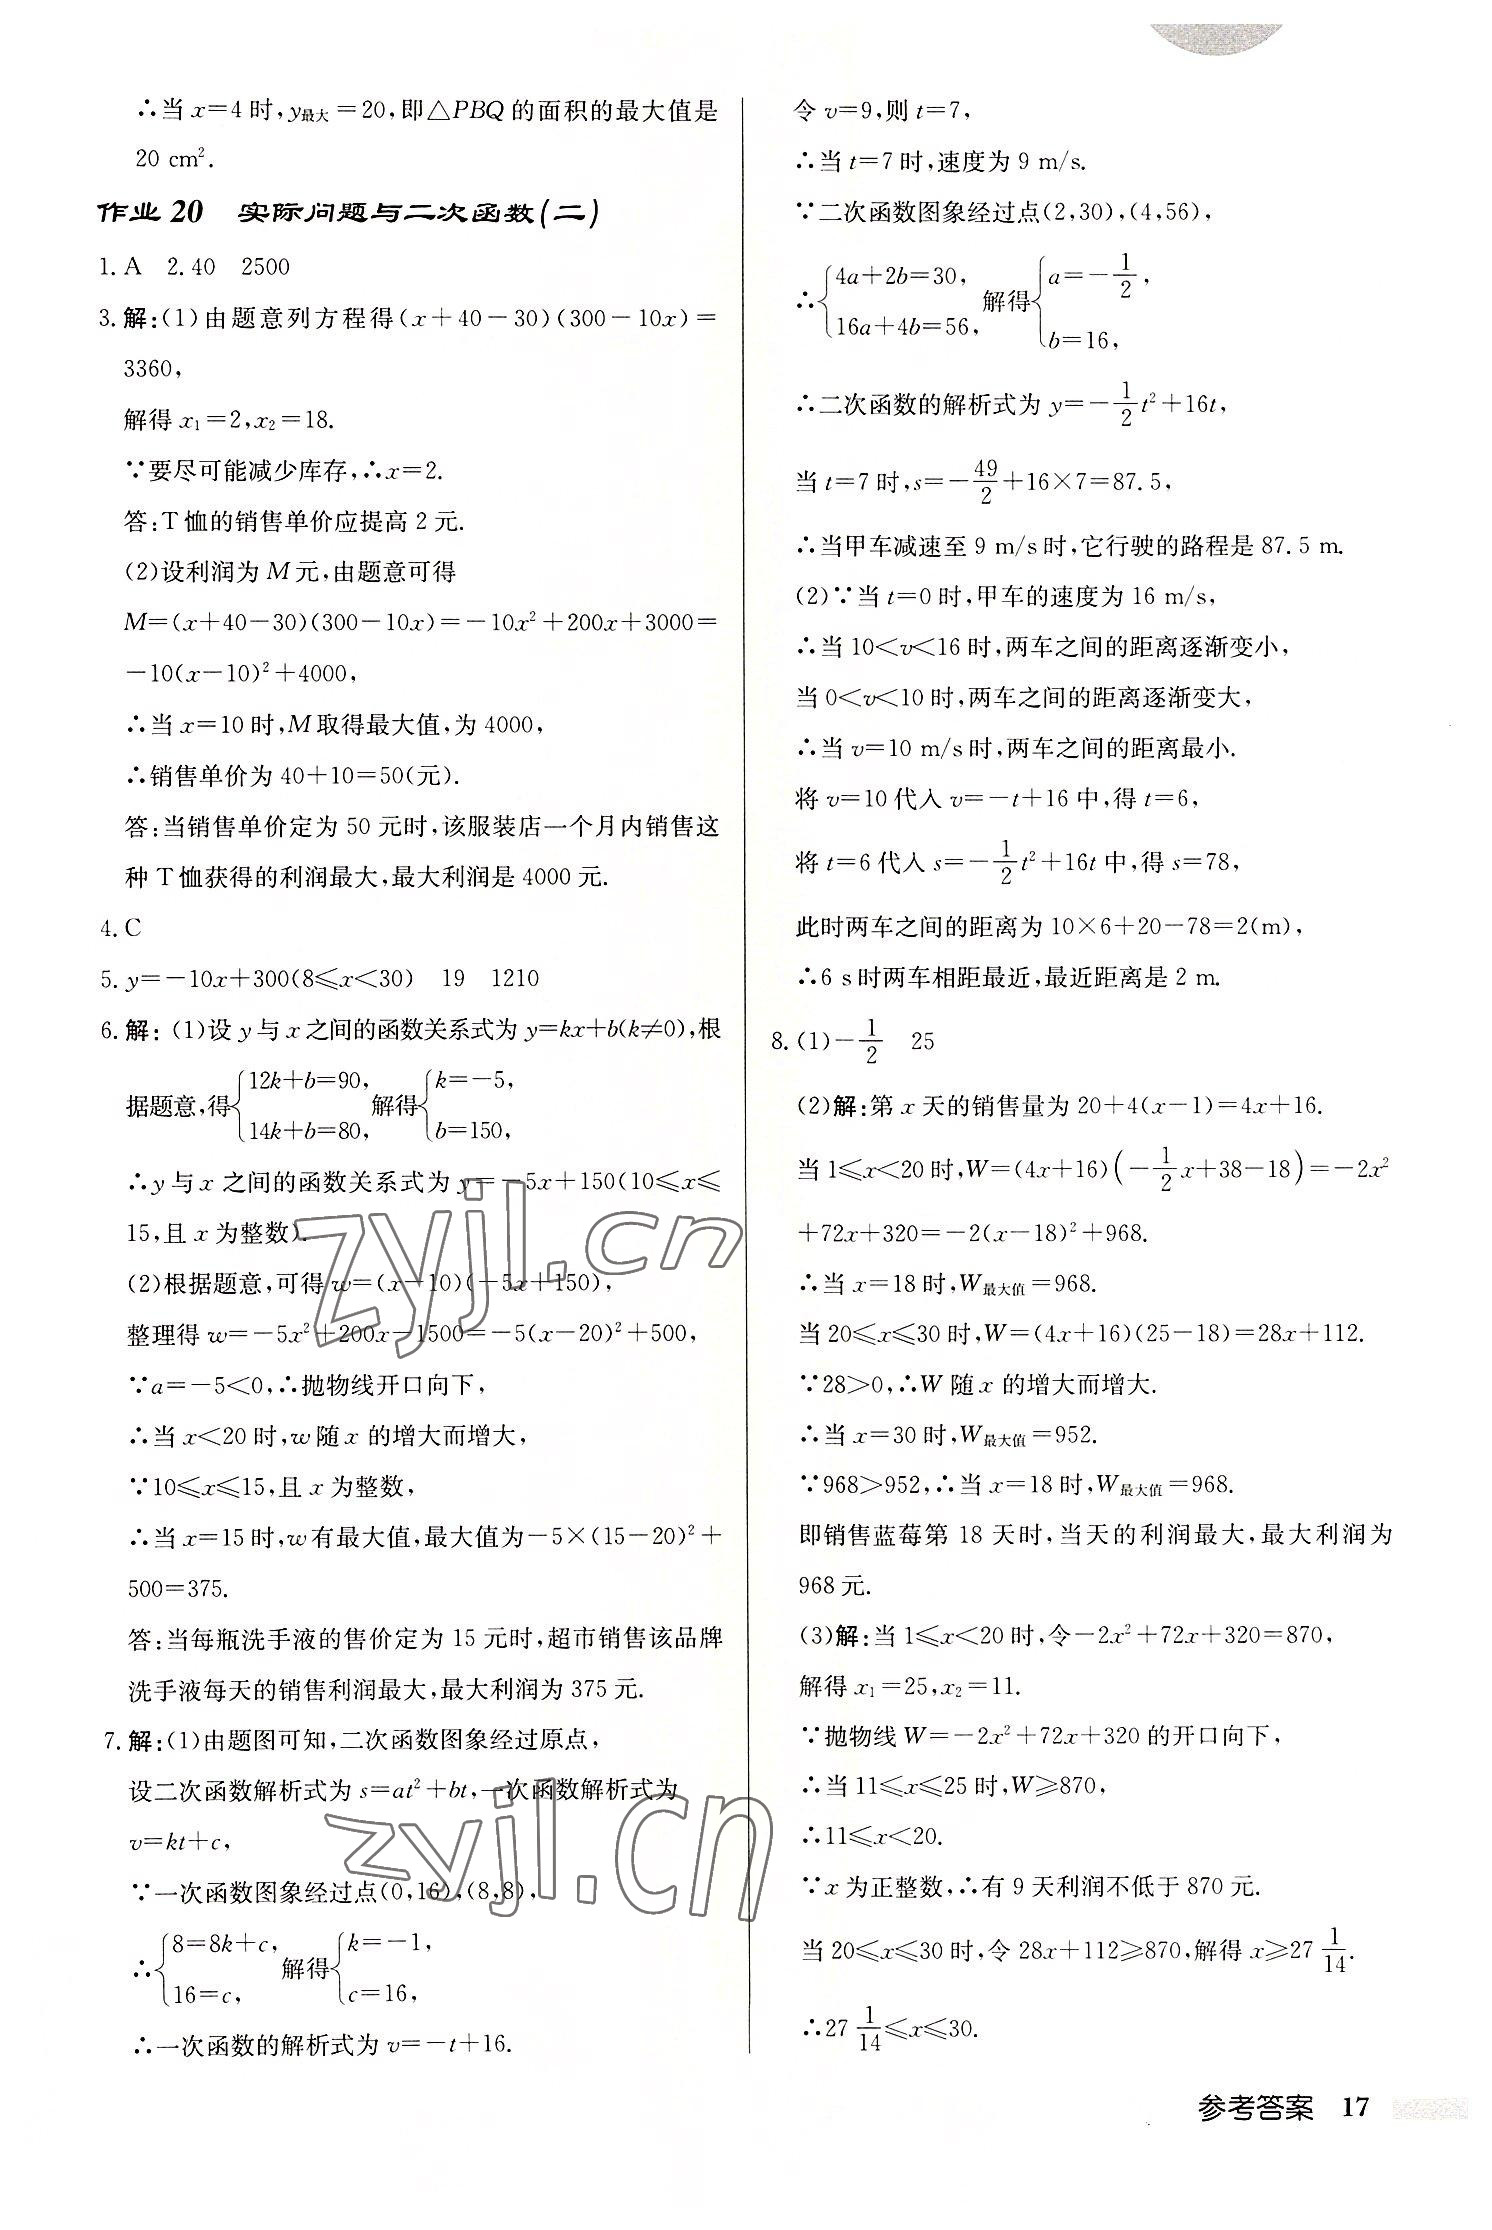 ∴当 x=4 时,y最大=20,即△PBQ 的面积的最大值是
20 cm².
作业 20 实际问题与二次函数(二)
1. A 2. 40 2500
3. 解:(1)由题意列方程得(x+40-30)(300-10x)=
3360,
解得 x₁=2,x₂=18.
∵要尽可能减少库存,∴x=2.
答:T恤的销售单价应提高 2 元.
(2)设利润为 M 元,由题意可得
M=(x+40-30)(300-10x)=-10x²+200x+3000=
-10(x-10)²+4000,
∴当 x=10 时,M 取得最大值,为 4000,
∴销售单价为 40+10=50(元).
答:当销售单价定为 50 元时,该服装店一个月内销售这
种 T恤获得的利润最大,最大利润是 4000 元.
4. C
5. y=-10x+300(8≤x<30) 19 1210
6. 解:(1)设 y 与 x 之间的函数关系式为 y=kx+b(k≠0),根
据题意,得{12k+b=90, 14k+b=80, 解得{k=-5, b=150,
∴y 与 x 之间的函数关系式为 y=-5x+150(10≤x≤
15,且 x 为整数).
(2)根据题意,可得 w=(x-10)(-5x+150),
整理得 w=-5x²+200x-1500=-5(x-20)²+500,
∵a=-5<0,∴抛物线开口向下,
∴当 x<20 时,w 随 x 的增大而增大,
∵10≤x≤15,且 x 为整数,
∴当 x=15 时,w 有最大值,最大值为-5×(15-20)²+
500=375.
答:当每瓶洗手液的售价定为 15 元时,超市销售该品牌
洗手液每天的销售利润最大,最大利润为 375 元.
7. 解:(1)由题图可知,二次函数图象经过原点,
设二次函数解析式为 s=at²+bt,一次函数解析式为
v=kt+c,
∵一次函数图象经过点(0,16),(8,8),
∴{8=8k+c, 16=c, 解得{k=-1, c=16,
∴一次函数的解析式为 v=-t+16.
令 v=9,则 t=7,
∴当 t=7 时,速度为 9 m/s.
∵二次函数图象经过点(2,30),(4,56),
∴{4a+2b=30, 16a+4b=56, 解得{a=-1/2, b=16,
∴二次函数的解析式为 y=-1/2t²+16t,
当 t=7 时,s=-49/2+16×7=87.5,
∴当甲车减速至 9 m/s 时,它行驶的路程是 87.5 m.
(2)∵当 t=0 时,甲车的速度为 16 m/s,
∴当 10<v<16 时,两车之间的距离逐渐变小,
当 0<v<10 时,两车之间的距离逐渐变大,
∴当 v=10 m/s 时,两车之间的距离最小.
将 v=10 代入 v=-t+16 中,得 t=6,
将 t=6 代入 s=-1/2t²+16t 中,得 s=78,
此时两车之间的距离为 10×6+20-78=2(m),
∴6 s 时两车相距最近,最近距离是 2 m.
8. (1)-1/2 25
(2)解:第 x 天的销售量为 20+4(x-1)=4x+16.
当 1≤x<20 时,W=(4x+16)(-1/2x+38-18)=-2x²
+72x+320=-2(x-18)²+968.
∴当 x=18 时,W最大值=968.
当 20≤x≤30 时,W=(4x+16)(25-18)=28x+112.
∵28>0,∴W 随 x 的增大而增大.
∴当 x=30 时,W最大值=952.
∵968>952,∴当 x=18 时,W最大值=968.
即销售蓝莓第 18 天时,当天的利润最大,最大利润为
968 元.
(3)解:当 1≤x<20 时,令-2x²+72x+320=870,
解得 x₁=25,x₂=11.
∵抛物线 W=-2x²+72x+320 的开口向下,
∴当 11≤x≤25 时,W≥870,
∴11≤x<20.
∵x 为正整数,∴有 9 天利润不低于 870 元.
当 20≤x≤30 时,令 28x+112≥870,解得 x≥27 1/14.
∴27 1/14≤x≤30.
参考答案 17
zyjl.cn
zyjl.cn